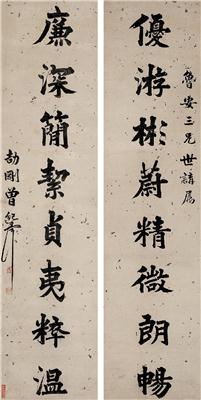 優游彬蔚精微朗暢
魯安三兄世講屬
廉深簡絜貞夷粹溫
劼剛曾紀澤